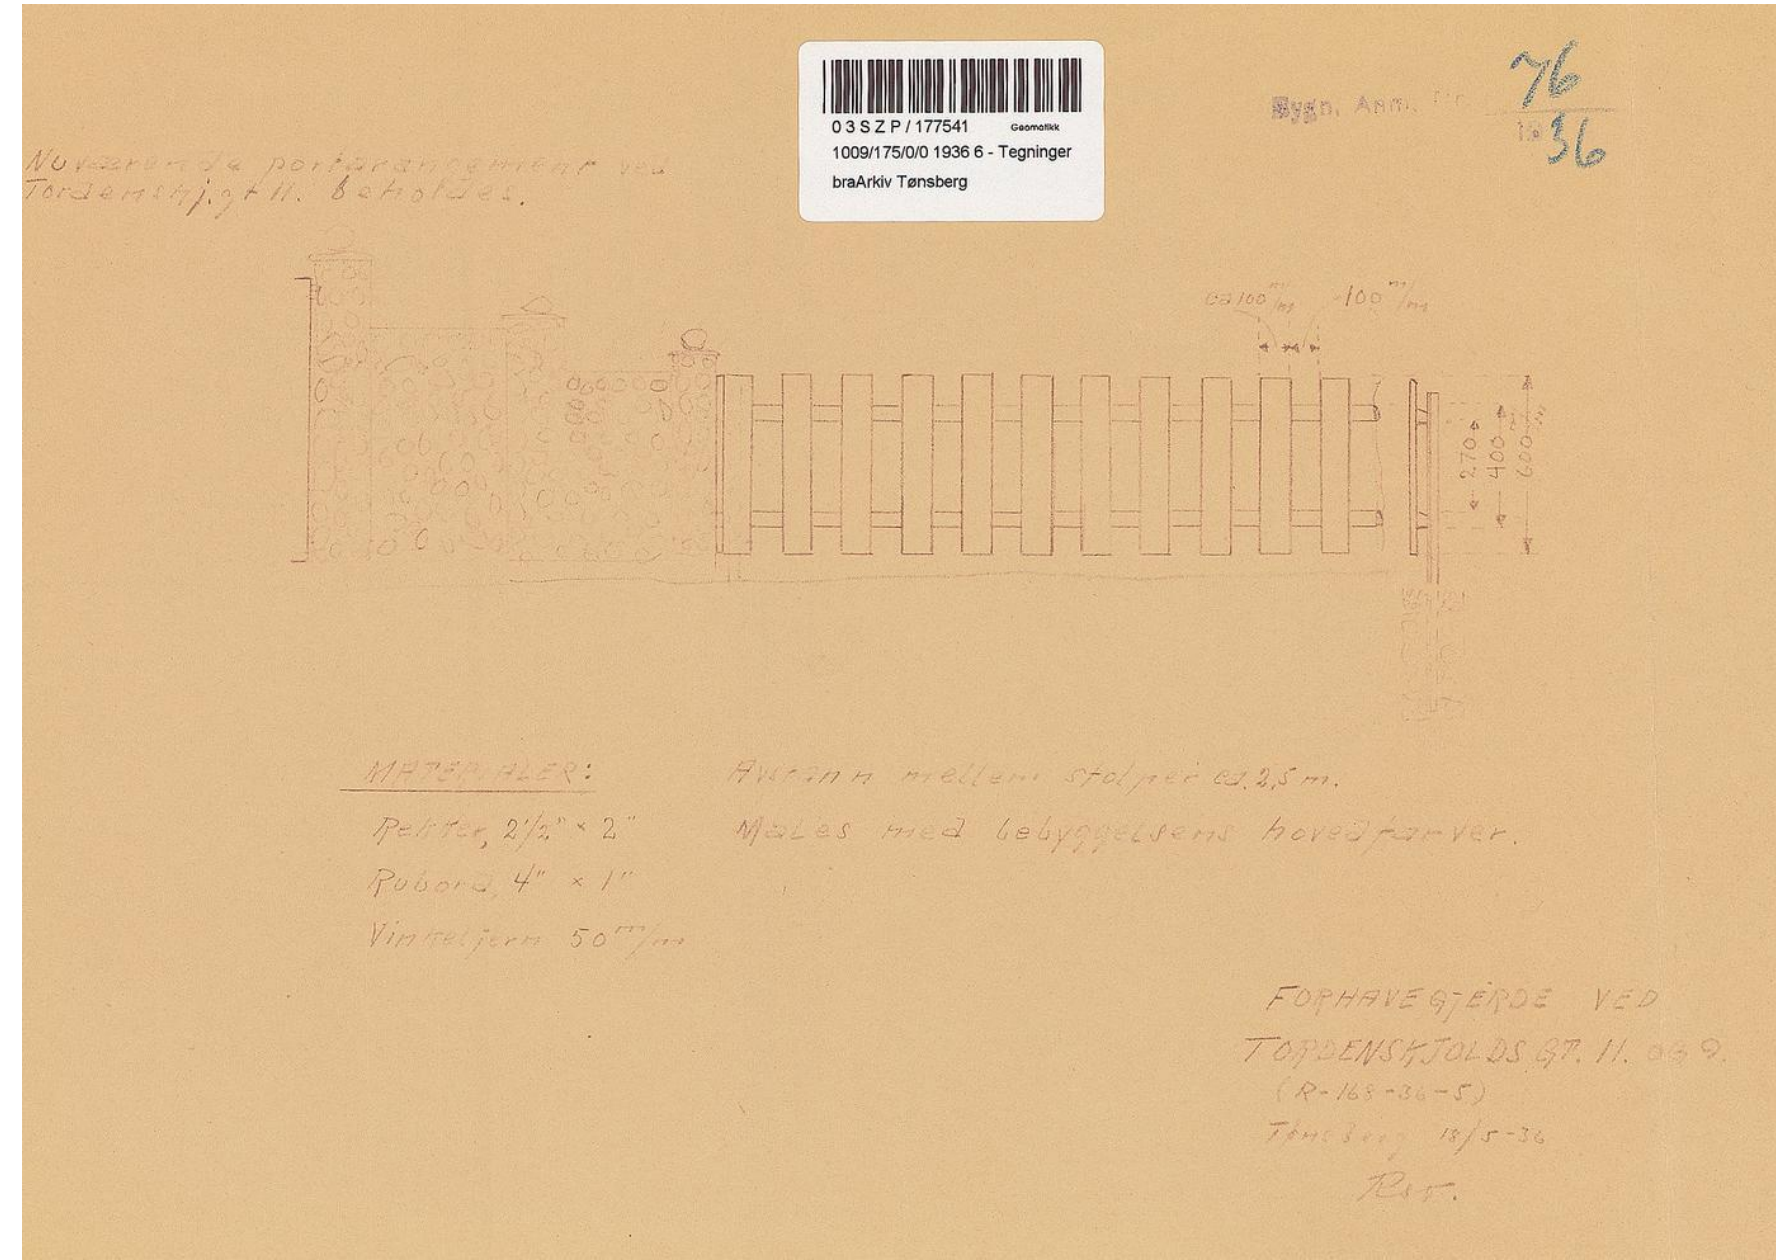 03SZP/177541 Geomatikk
1009/175/0/0 1936 6 - Tegninger
braArkiv Tønsberg
Bygn. Anm. Nr. 76
1936
Nuværende portarangement ved
Tordenskj.gt 11. beholdes.
ca 100 m/m 100 m/m
270
400
600 m/m
MATERIALER:
Rekker, 2 1/2" × 2"
Rubord, 4" × 1"
Vinkeljern 50 m/m
Avstann mellem stolper ca. 2,5 m.
Males med bebyggelsens hovedfarver.
FORHAVEGJERDE VED
TORDENSKJOLDS GT. 11. OG 9.
(R-168-36-5)
Tønsberg 18/5-36